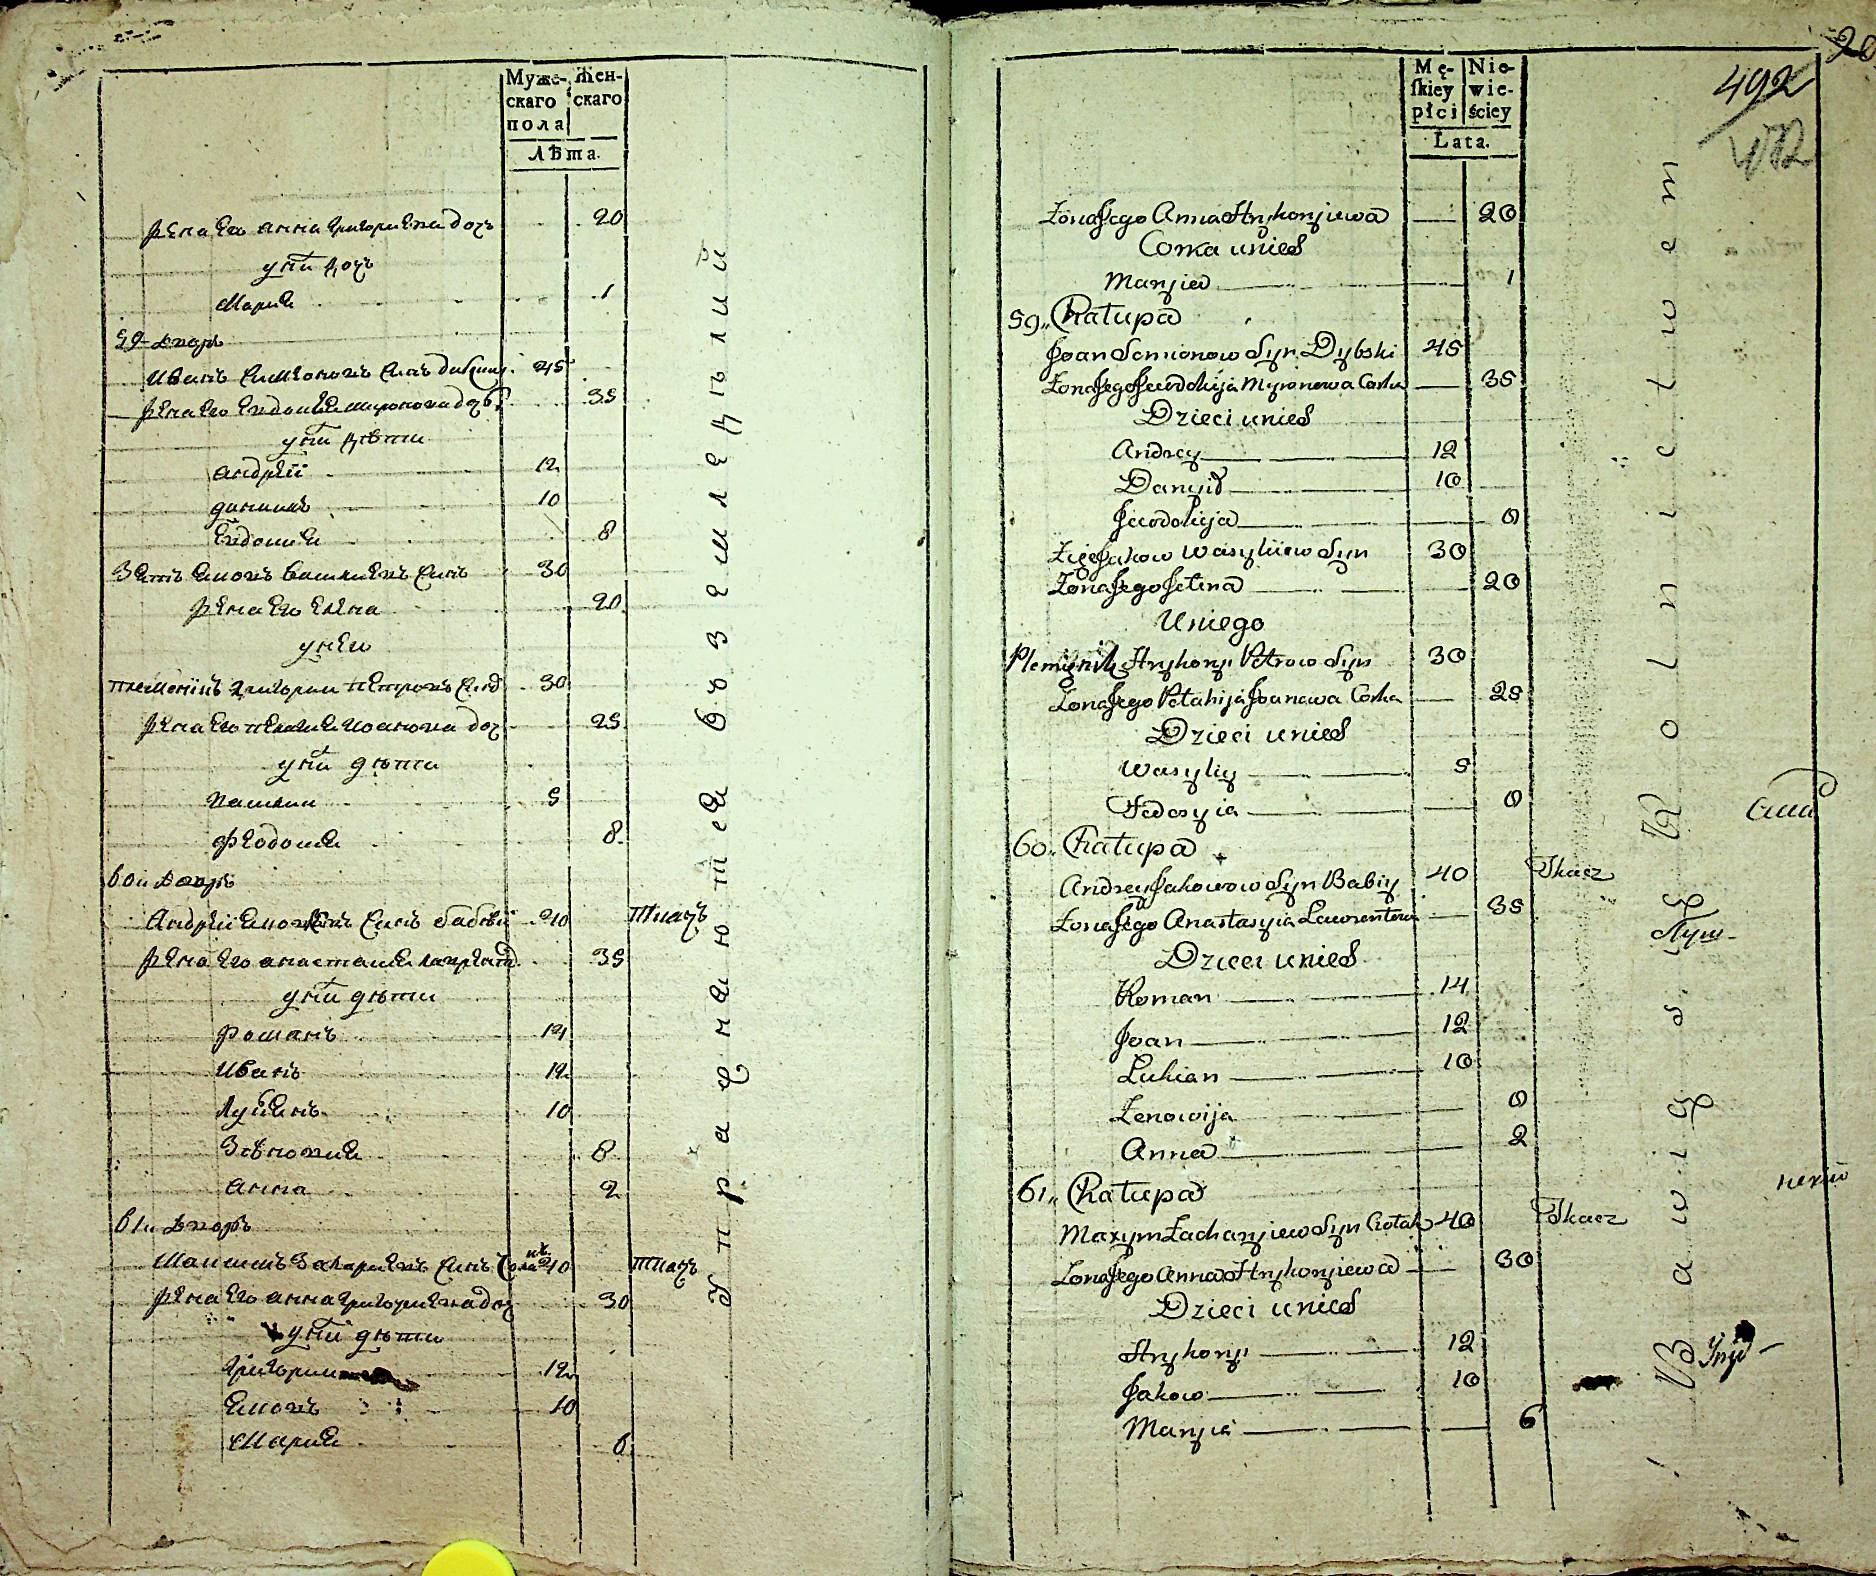 Муже-
скаго
пола
Жен-
скаго
Лѣта.
жена его анна григориева дочь 20
у них дочь
Мария 1
59 дворъ
Иванъ Симеоновъ синъ 45
жена его Евдокия миронова дочь 35
у них дѣти
андрей 12
данило 10
Евдокия 8
Зять Яковъ Василиевъ синъ 30
жена его Елена 20
у него
племѣникъ григории петровъ синъ 30
жена его пелагия иоанова доч 25
у них дѣти
василии 5
феодосия 8
60 дворъ
Андрей Яковлевъ синъ бабий 40 ткачъ
жена его анастасия лаврент 35
у них дѣти
романъ 14
Иванъ 12
Лукиянъ 10
Зѣновия 8
анна 2
61 дворъ
Максимъ Захариевъ синъ 40 ткачъ
жена его анна григориева доч 30
у них дѣти
григории 12
Яковъ 10
Мария 6
Упражняются въ земледѣлии
Mę-
skiey
płci
Nie-
wie-
ściey
Lata.
20
492
Żona Jego Anna Hryhoryiewa 20
Corka u nich
Maryia 1
59. Chałupa
Joan Semionow Syn Dybski 45
Żona Jego Jewdokija Myronowa Corka 35
Dzieci u nich
Andrey 12
Danyił 10
Jewdokija 8
Zięć Jakow Wasyliiew Syn 30
Żona Jego Jelena 20
U niego
Plemięnik Hryhoryi Petrow Syn 30
Żona Jego Pelahija Joanowa Corka 25
Dzieci u nich
Wasyliy 5
Fedosyia 8
60. Chałupa
Andrey Jakowow Syn Babiy 40 Tkacz
Żona Jego Anastasyia Lawrentowa 35
Dzieci u nich
Roman 14
Joan 12
Lukian 10
Zenowija 8
Anna 2
61. Chałupa
Maxym Zacharyiew Syn 40 Tkacz
Żona Jego Anna Hryhoryiewa 30
Dzieci u nich
Hryhoryi 12
Jakow 10
Maryia 6
Bawią się Rolnictwem